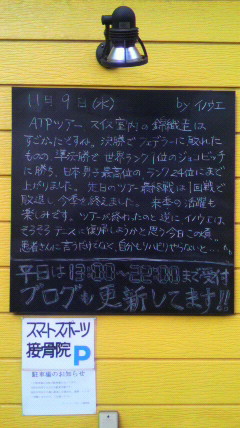 11月9日(水) by イノウエ
ATPツアー スイス室内の錦織圭は
すごかったですね。決勝でフェデラーに敗れた
ものの 準決勝で世界ランク1位のジョコビッチ
に勝ち、日本男子最高位の、ランク24位にまで
上がりました。先日のツアー最終戦は1回戦で
敗退し 今季を終えました。来季の活躍も
楽しみです。ツアーが終わったのと逆に イノウエは、
そろそろテニスに復帰しようかと思う今日この頃
患者さんに言うだけでなく、自分もリハビリやらないと…
平日は13:00〜22:00まで受付
ブログも更新してます!!
スマートスポーツ
接骨院 P
駐車場のお知らせ